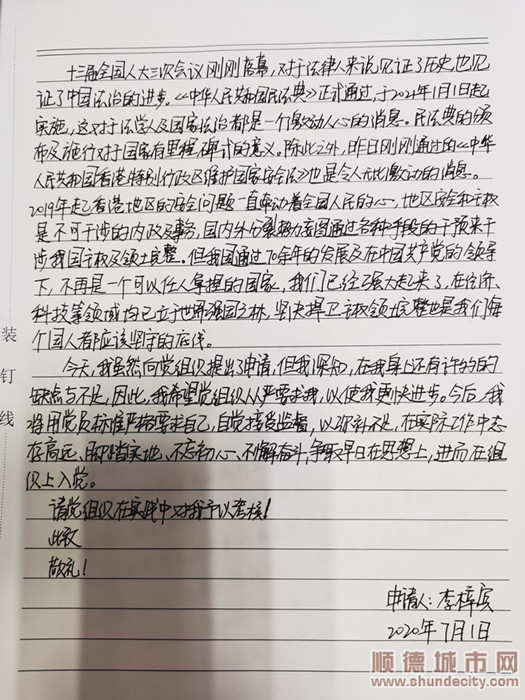 十三届全国人大三次会议刚刚落幕，对于法律人来说见证了历史，也见
证了中国法治的进步。《中华人民共和国民法典》正式通过，于2021年1月1日起
实施，这对于法学人及国家法治都是一个激动人心的消息。民法典的颁
布及施行对于国家有里程碑式的意义。除此之外，昨日刚刚通过的《中华
人民共和国香港特别行政区维护国家安全法》也是令人无比激动的消息。
2019年起香港地区的安全问题一直牵动着全国人民的心，地区安全和主权
是不可干涉的内政及事务，国内外分裂势力意图通过各种手段的干预来干
涉我国主权及领土完整。但我国通过70余年的发展及在中国共产党的领导
下，不再是一个可以任人拿捏的国家，我们已经强大起来了，在经济、
科技等领域均已立于世界强国之林，坚决捍卫主权领土完整也是我们每
个国人都应该坚守的底线。
今天，我虽然向党组织提出申请，但我深知，在我身上还有许多的
缺点与不足，因此，我希望党组织从严要求我，以使我更快进步。今后，我
将用党员标准严格要求自己，自觉接受监督，以弥补不足，在实际工作中志
存高远、脚踏实地、不忘初心、不懈奋斗，争取早日在思想上，进而在组
织上入党。
请党组织在实践中对我予以考核！
此致
敬礼！
申请人：李梓宾
2020年7月1日
装
钉
线
顺德城市网
www.shundecity.com